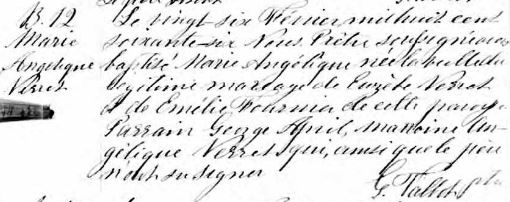 B. 12
Marie
Angélique
Verret
Le vingt six Février mil huit cent
soixante-six Nous Prêtre soussigné avons
baptisé Marie Angélique née la veille du
légitime mariage de Eusèbe Verret
et de Emélie Fournier de cette paroisse
Parrain George April, marraine An-
gélique Verret qui, ainsi que le père
n'ont su signer
G. Talbot ptre